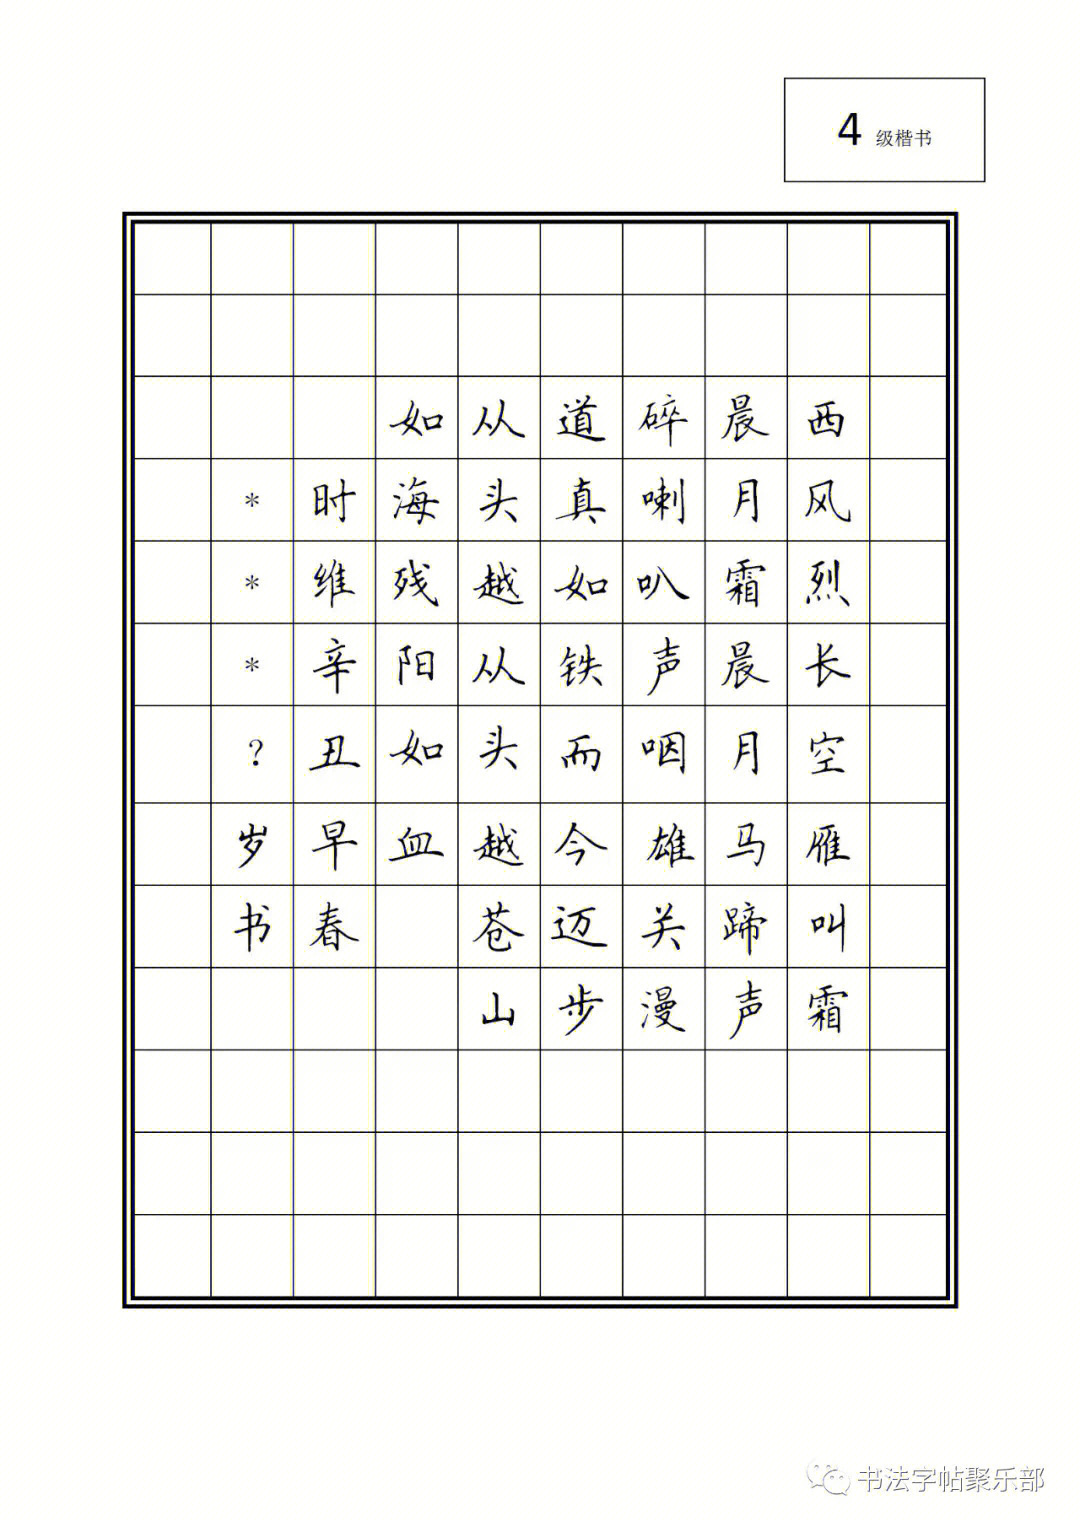 4 级楷书
西风烈长空雁叫霜
晨月霜晨月马蹄声
碎喇叭声咽雄关漫
道真如铁而今迈步
从头越从头越苍山
如海残阳如血
时维辛丑早春
***?岁书
书法字帖聚乐部